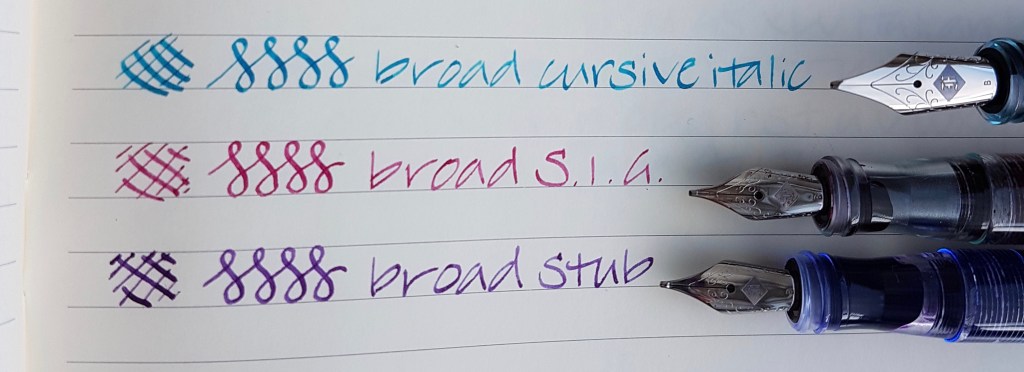 broad cursive italic
broad S.I.G.
broad stub